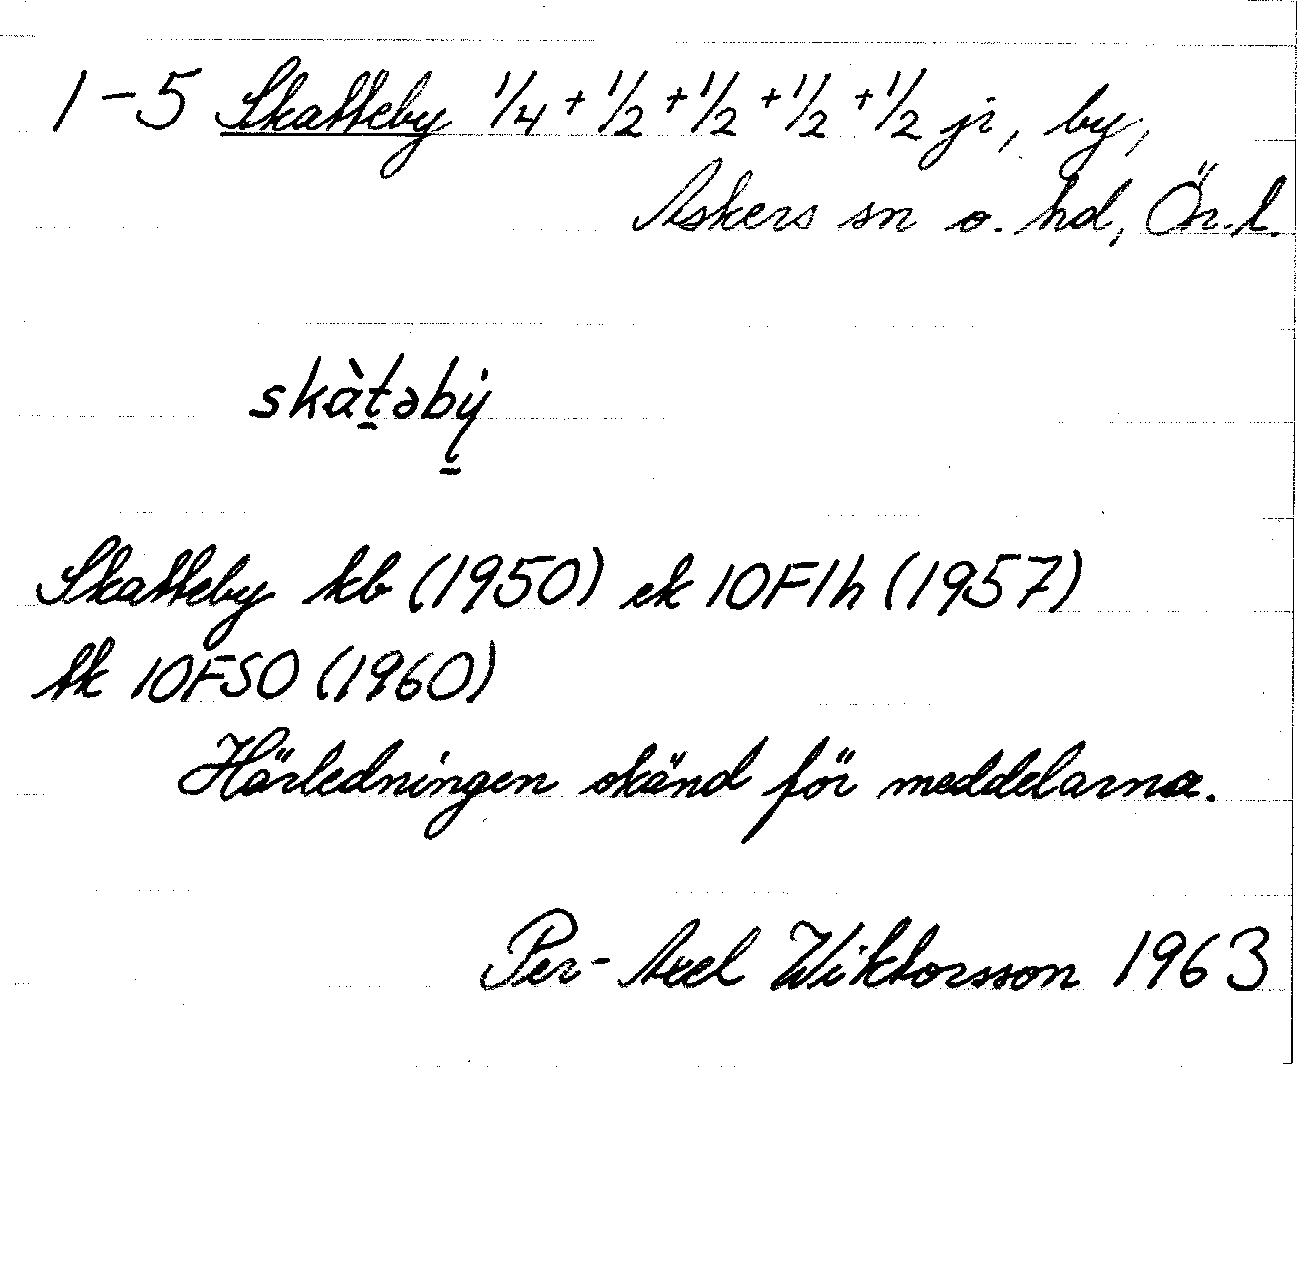 1-5 Skatteby 1/4 + 1/2 + 1/2 + 1/2 + 1/2 jr, by,
Askers sn o. hd, Ör. l.
skàt̠əbẏ̠
Skatteby kb (1950) ek 10F1h (1957)
tk 10FSO (1960)
Härledningen okänd för meddelarna.
Per-Axel Wiktorsson 1963